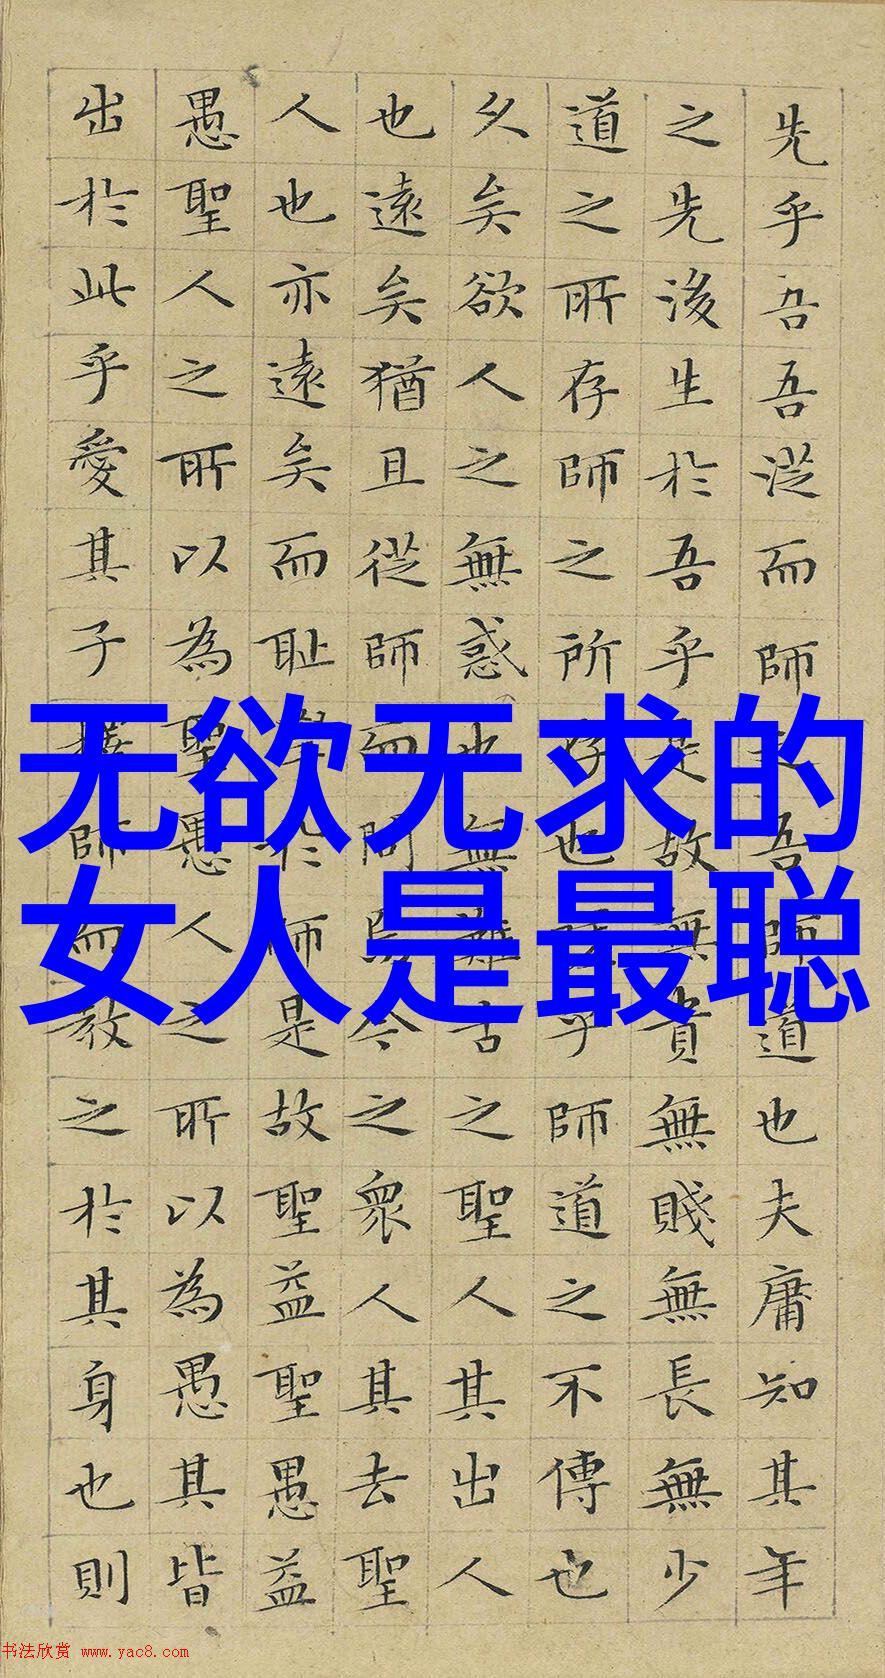 先乎吾吾從而師之吾師道也夫庸知其年
之先後生於吾乎是故無貴無賤無長無少
道之所存師之所存也嗟乎師道之不傳也
久矣欲人之無惑也無難古之聖人其出人
也遠矣猶且從師而問焉今之衆人其去聖
人也亦遠矣而恥學於師是故聖益聖愚益
愚聖人之所以為聖愚人之所以為愚其皆
出於此乎愛其子擇師而教之於其身也則
无欲无求的
女人是最聪
书法欣赏 www.yac8.com